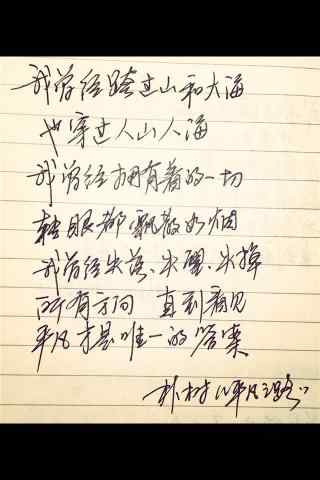 我曾经跨过山和大海
也穿过人山人海
我曾经拥有着的一切
转眼都飘散如烟
我曾经失落、失望、失掉
所有方向 直到看见
平凡才是唯一的答案
朴树《平凡之路》